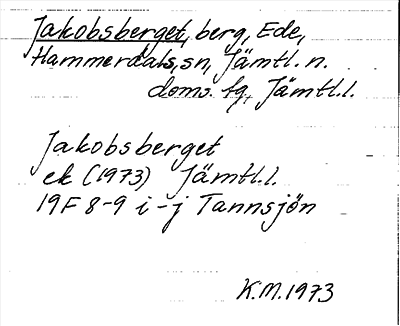 Jakobsberget, berg, Ede,
Hammerdals, sn, Jämtl. n.
doms. fg, Jämtl.l.
Jakobsberget
ek (1973) Jämtl.l.
19F 8-9 i-j Tannsjön
K.M. 1973